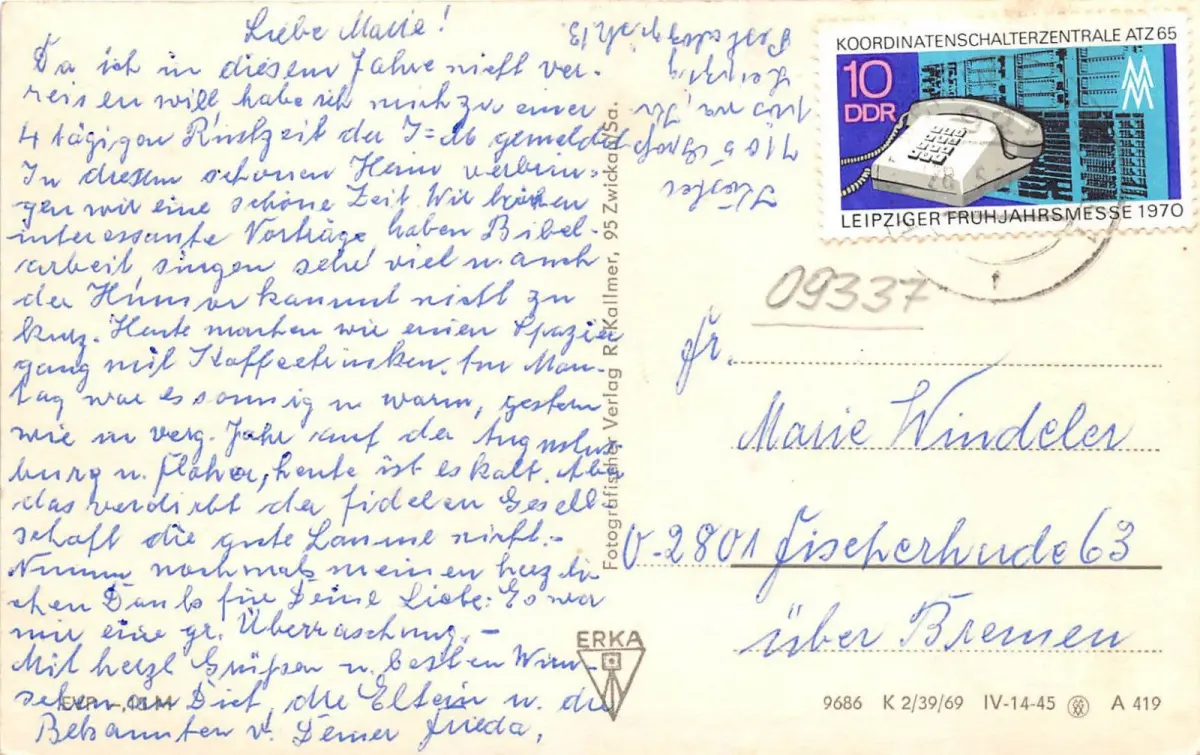 Liebe Marie!
Da ich in diesem Jahre nicht ver-
reisen will habe ich mich zu einer
4 tägigen Rüstzeit der I=M gemeldet
In diesem schönen Heim verbrin-
gen wir eine schöne Zeit. Wir hören
interessante Vorträge, haben Bibel-
arbeit, singen sehr viel u. auch
der Humor kommt nicht zu
kurz. Heute machen wir einen Spazier
gang mit Kaffeetrinken. Am Mon-
tag war es sonnig u warm, gestern
wie in verg. Jahr auf der Augustus
burg u. Flöha, heute ist es kalt. Aber
das verdirbt der fidelen Gesell-
schaft die gute Laune nicht.-
Nimm nochmals meinen herzli-
chen Dank für Deine Liebe: Es war
mir eine gr. Überraschung. -
Mit herzl Grüßen u. besten Wün-
schen an Dich, die Eltern u. die
Bekannten v. Deiner Frieda,
7105
Fotografischer Verlag R. Kallmer, 95 Zwickau/Sa.
KOORDINATENSCHALTERZENTRALE ATZ 65
10
DDR
LEIPZIGER FRÜHJAHRSMESSE 1970
09337
Fr.
Marie Windeler
2801 Fischerhude 63
über Bremen
ERKA
9686 K 2/39/69 IV-14-45 A 419